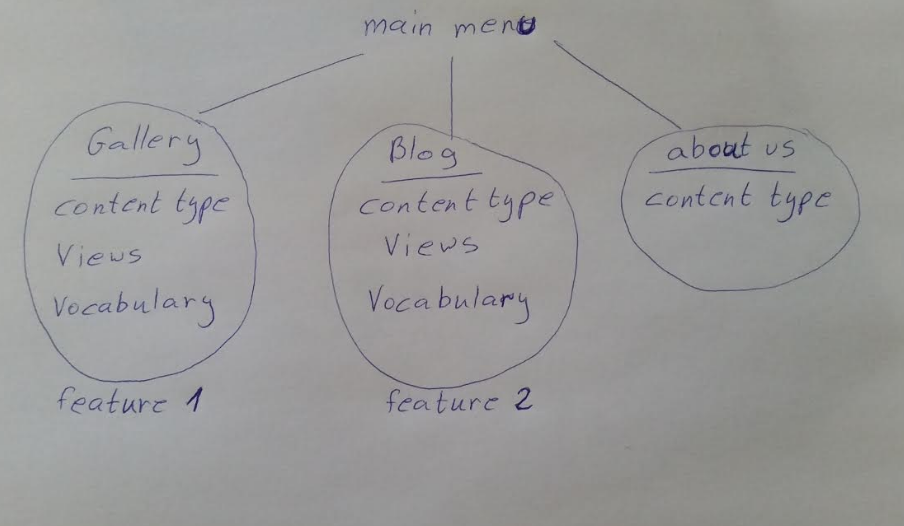 main menu
Gallery
content type
Views
Vocabulary
feature 1
Blog
content type
Views
Vocabulary
feature 2
about us
content type